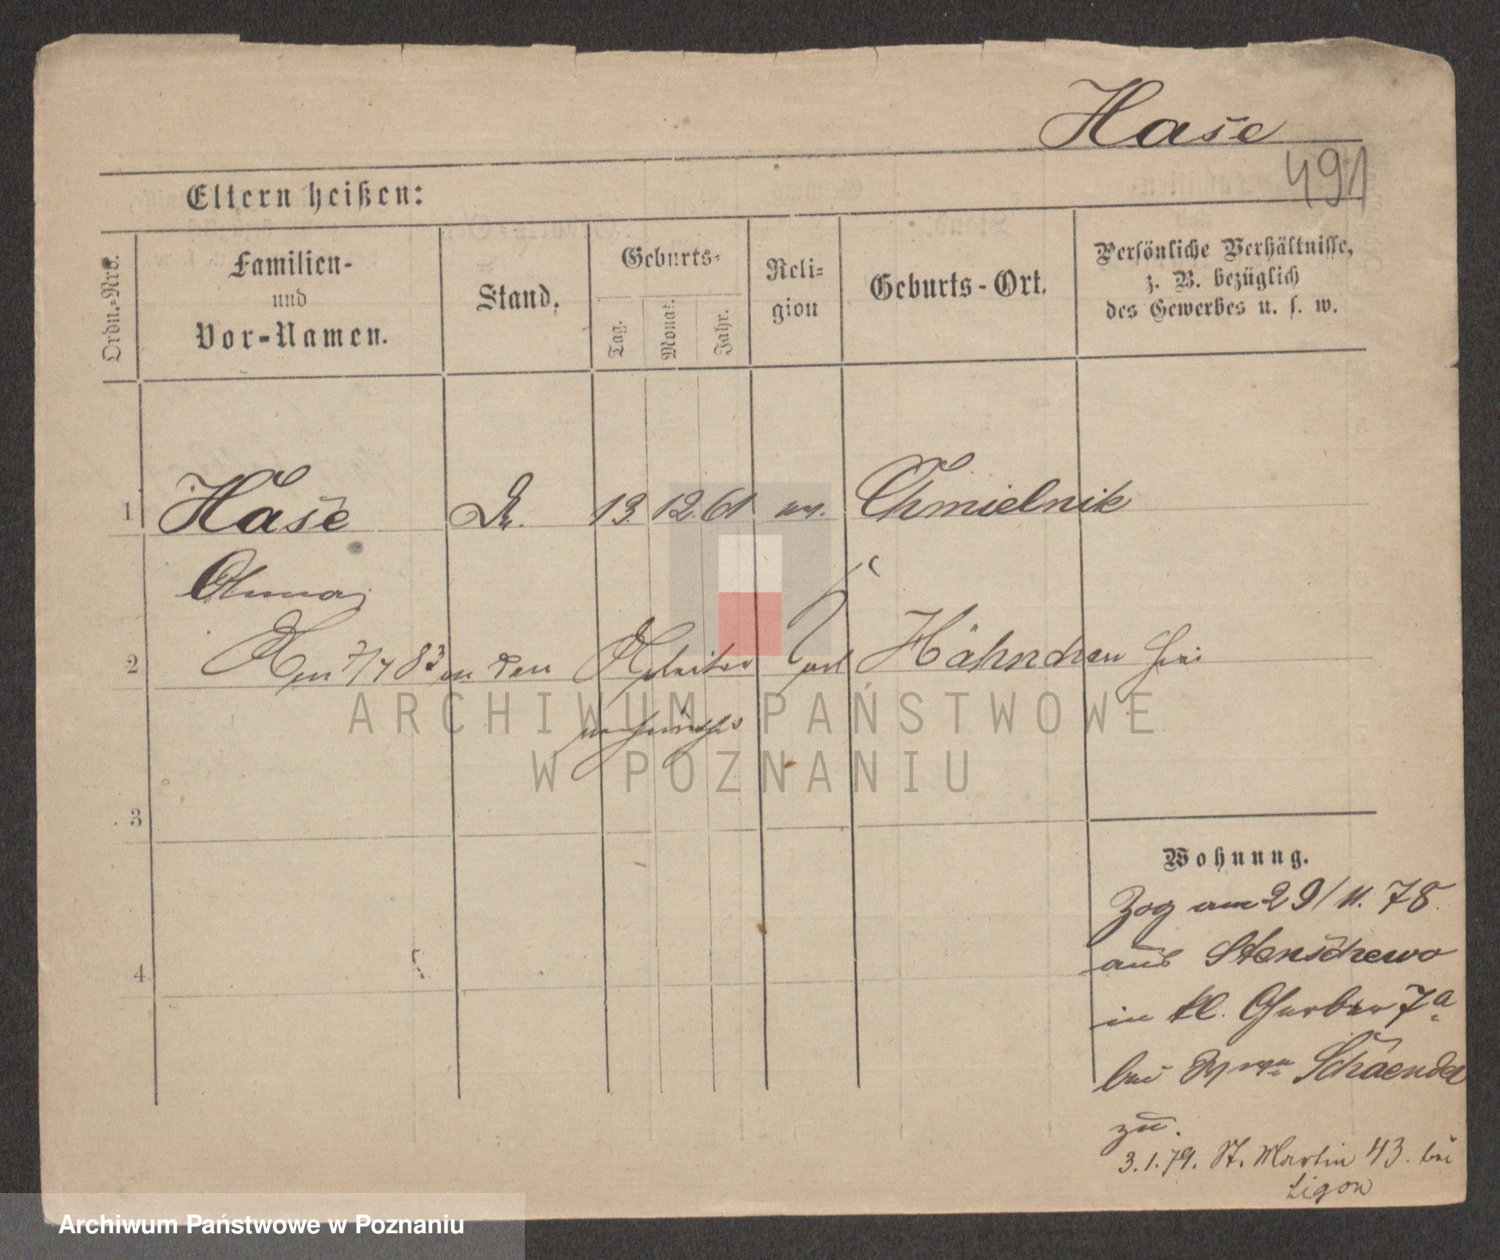 Hase
491
Eltern heißen:
Ordn.-Nro.
Familien-
und
Vor-Namen.
Stand.
Geburts-
Tag.
Monat.
Jahr.
Reli-
gion
Geburts-Ort.
Persönliche Verhältnisse,
z. B. bezüglich
des Gewerbes u. s. w.
1 Hase 13. 12. 61 ev. Chmielnik
Anna
2 Am 7/7 83 an den Arbeiter Carl Hähnchen hier
verheirathet
3
Wohnung.
Zog am 29/11. 78.
aus Stenschewo
in kl. Gerber 7a
4
bei Schaende
zu.
3.1.79. St. Martin 43. bei
Ligow
ARCHIWUM PAŃSTWOWE
W POZNANIU
Archiwum Państwowe w Poznaniu